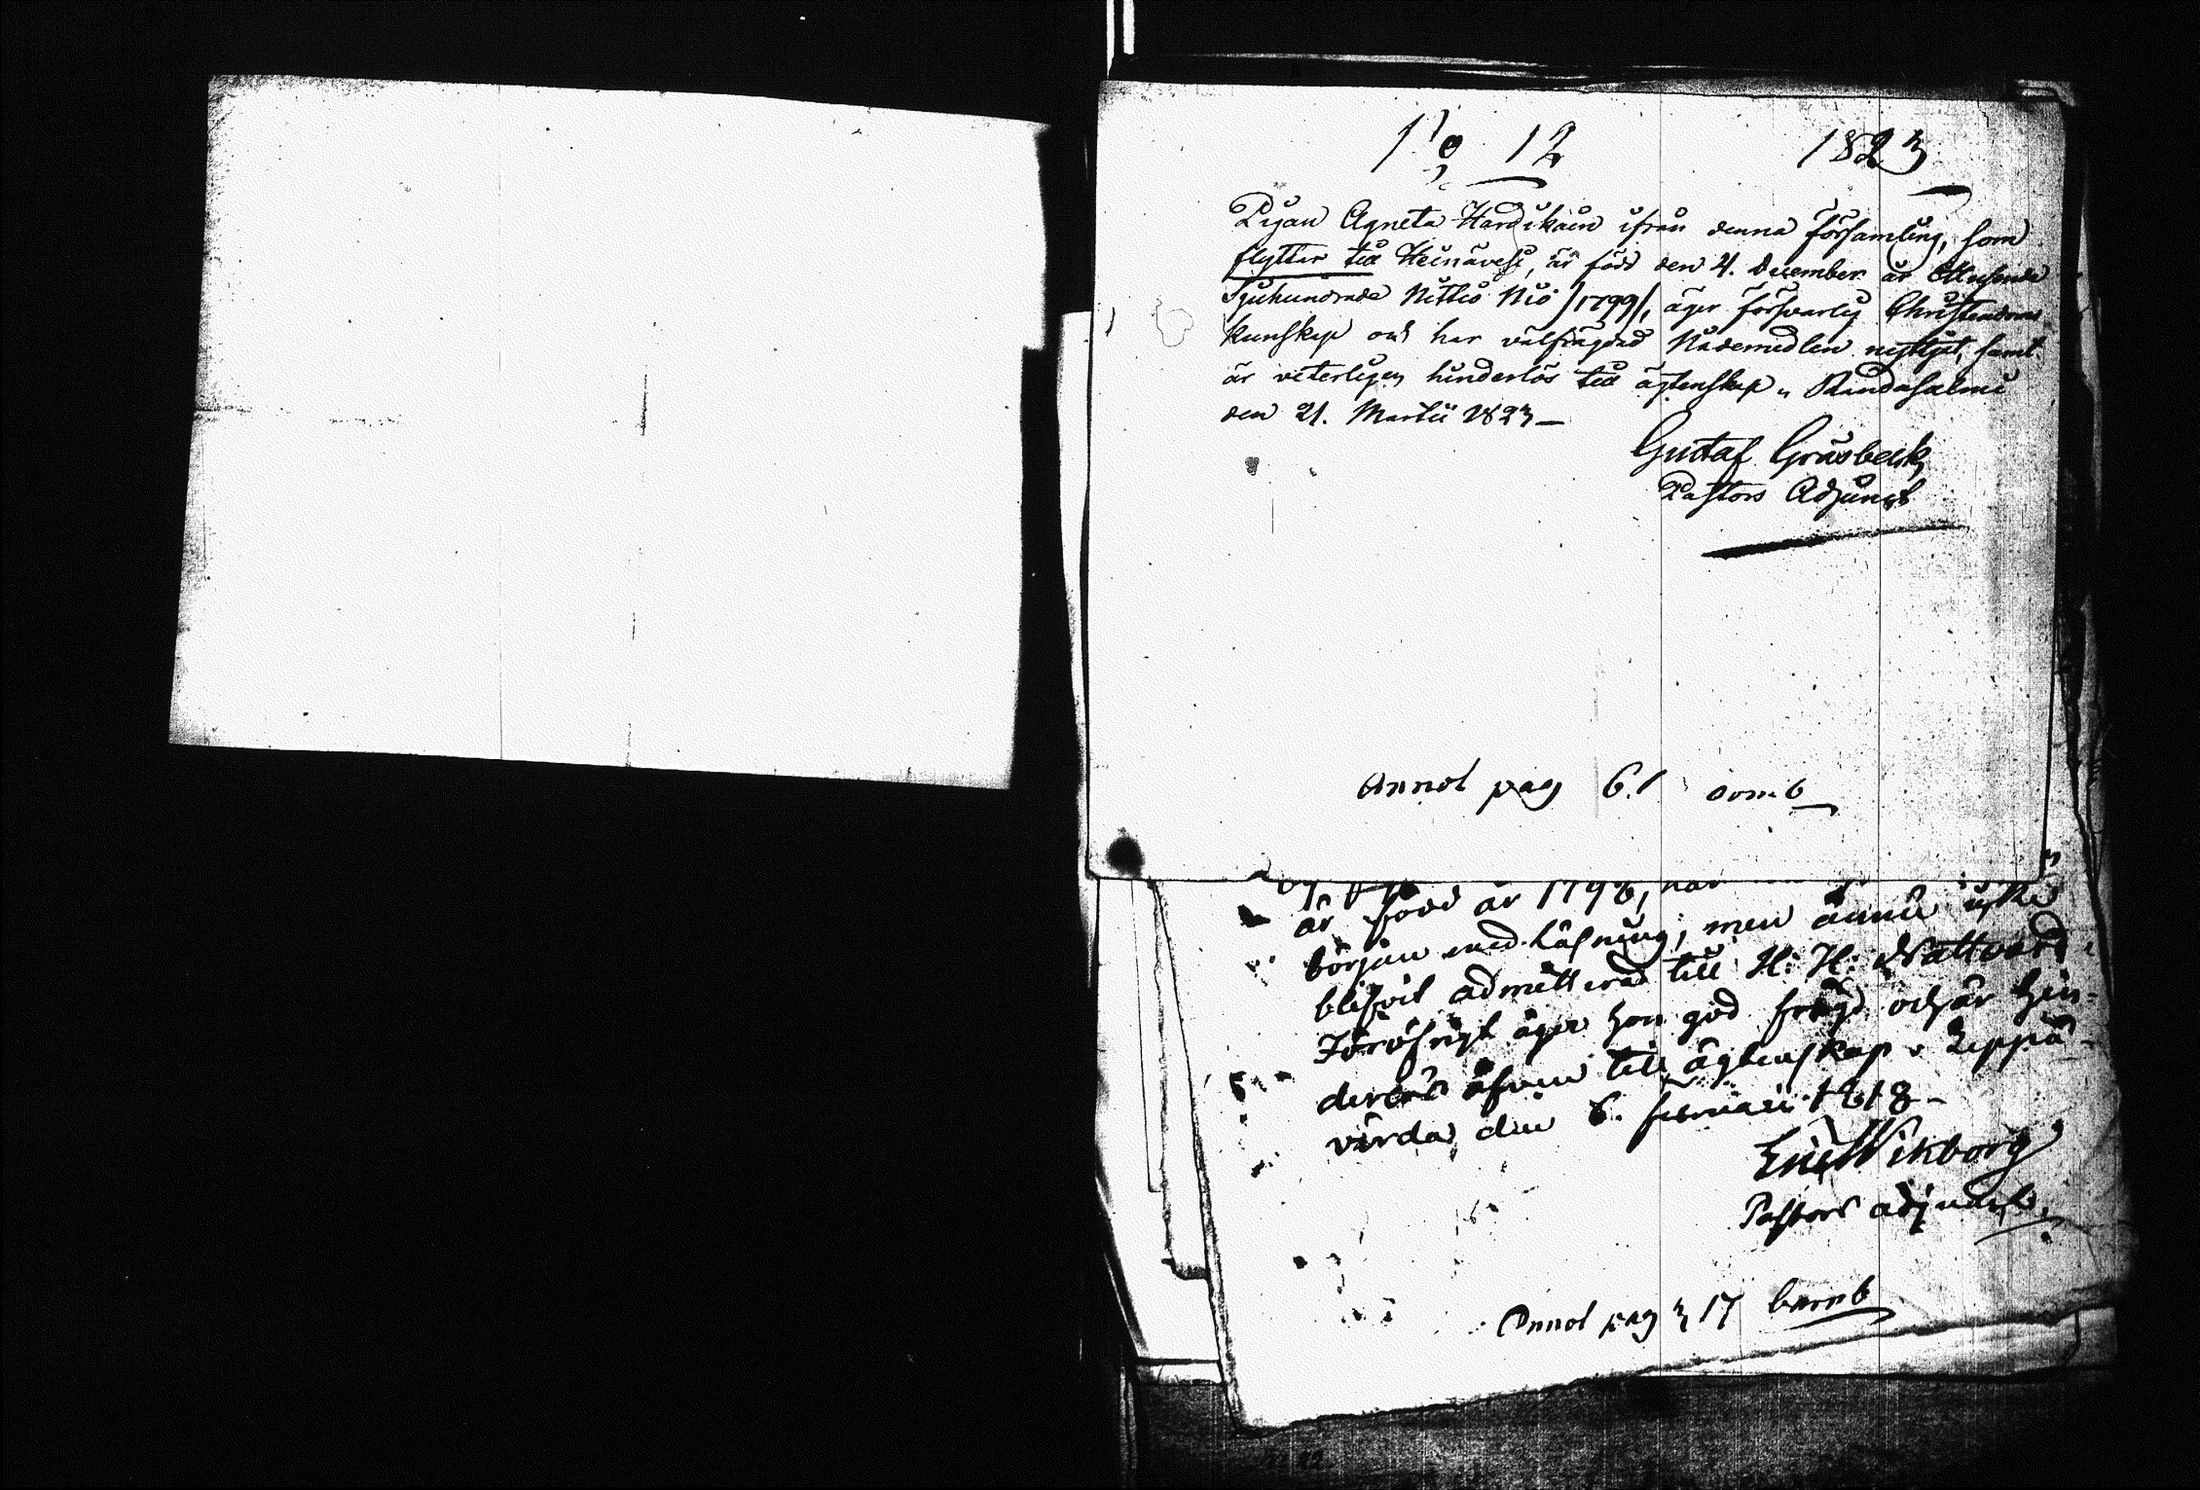 No 12 1823
Pigan Agneta Hardikain ifrån denna församling, som
flyttar till Heinävesi, är född den 4. December år Ettusende
Sjuhundrade Nittio Nio /1799/, äger försvarlig Christendoms
kunskap och har välfrägdad Nådemedlen nyttjat, samt
är veterligen hinderlös till ägtenskap. Randasalmi
den 21. Martii 1823 —
Gustaf Gråsbeck
Pastors Adjunct
Annot pag 61
är född år 1798, har
början med läsning, men ännu icke
blifvit admitterad till H. H. Nattvard
Föröfrigt äger hon god frägd och är hin-
derlös äfven till ägtenskap. Leppä-
virda den 6. februari 1818 -
Eric Wikborg
Pastors adjunct.
Annot pag 317